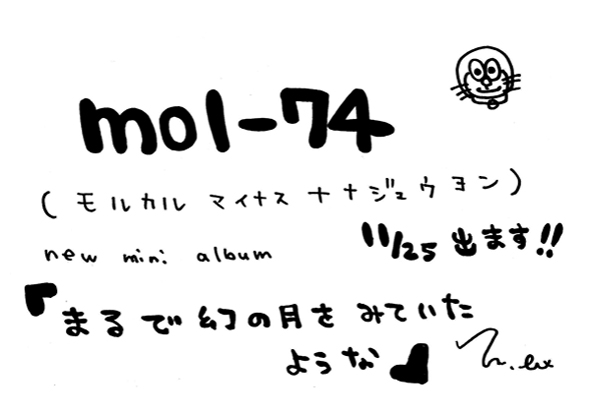 mol-74
(モルカルマイナスナナジュウヨン)
new mini album
11/25 出ます!!
『まるで幻の月をみていた
ような』